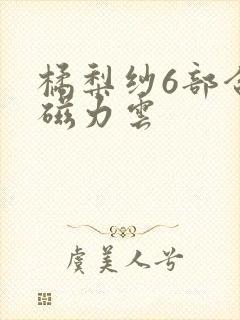 橘梨纱6部合
磁力雲
虞美人兮